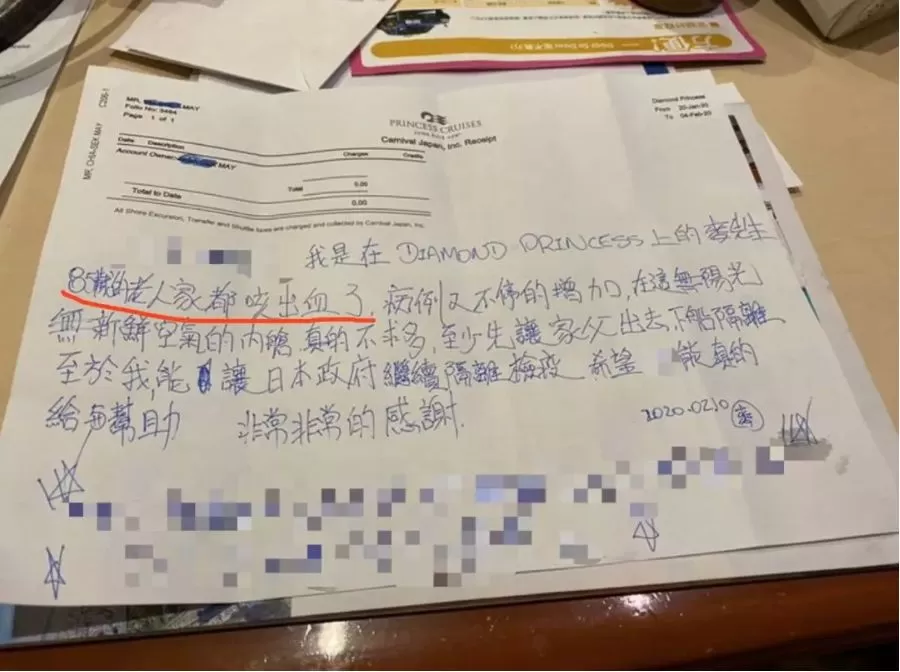 方便!
MR. MAY
Folio No: 3494
Page 1 of 1
C206-1
PRINCESS CRUISES
Carnival Japan, Inc. Receipt
Diamond Princess
From 20-Jan-20
To 04-Feb-20
Date Description Charges Credits
Account Owner- MAY
Total 0.00
Total to Date 0.00
All Shore Excursion, Transfer and Shuttle fares are charged and collected by Carnival Japan, Inc.
我是在 DIAMOND PRINCESS 上的 先生
85歲的老人家都咳出血了, 病例又不停的增加, 在這無陽光
無新鮮空氣的內艙, 真的不求多, 至少先讓家父出去, 下船隔離
至於我, 能讓日本政府繼續隔離檢疫 希望 能真的
給 幫助 非常非常的感謝.
2020.0210